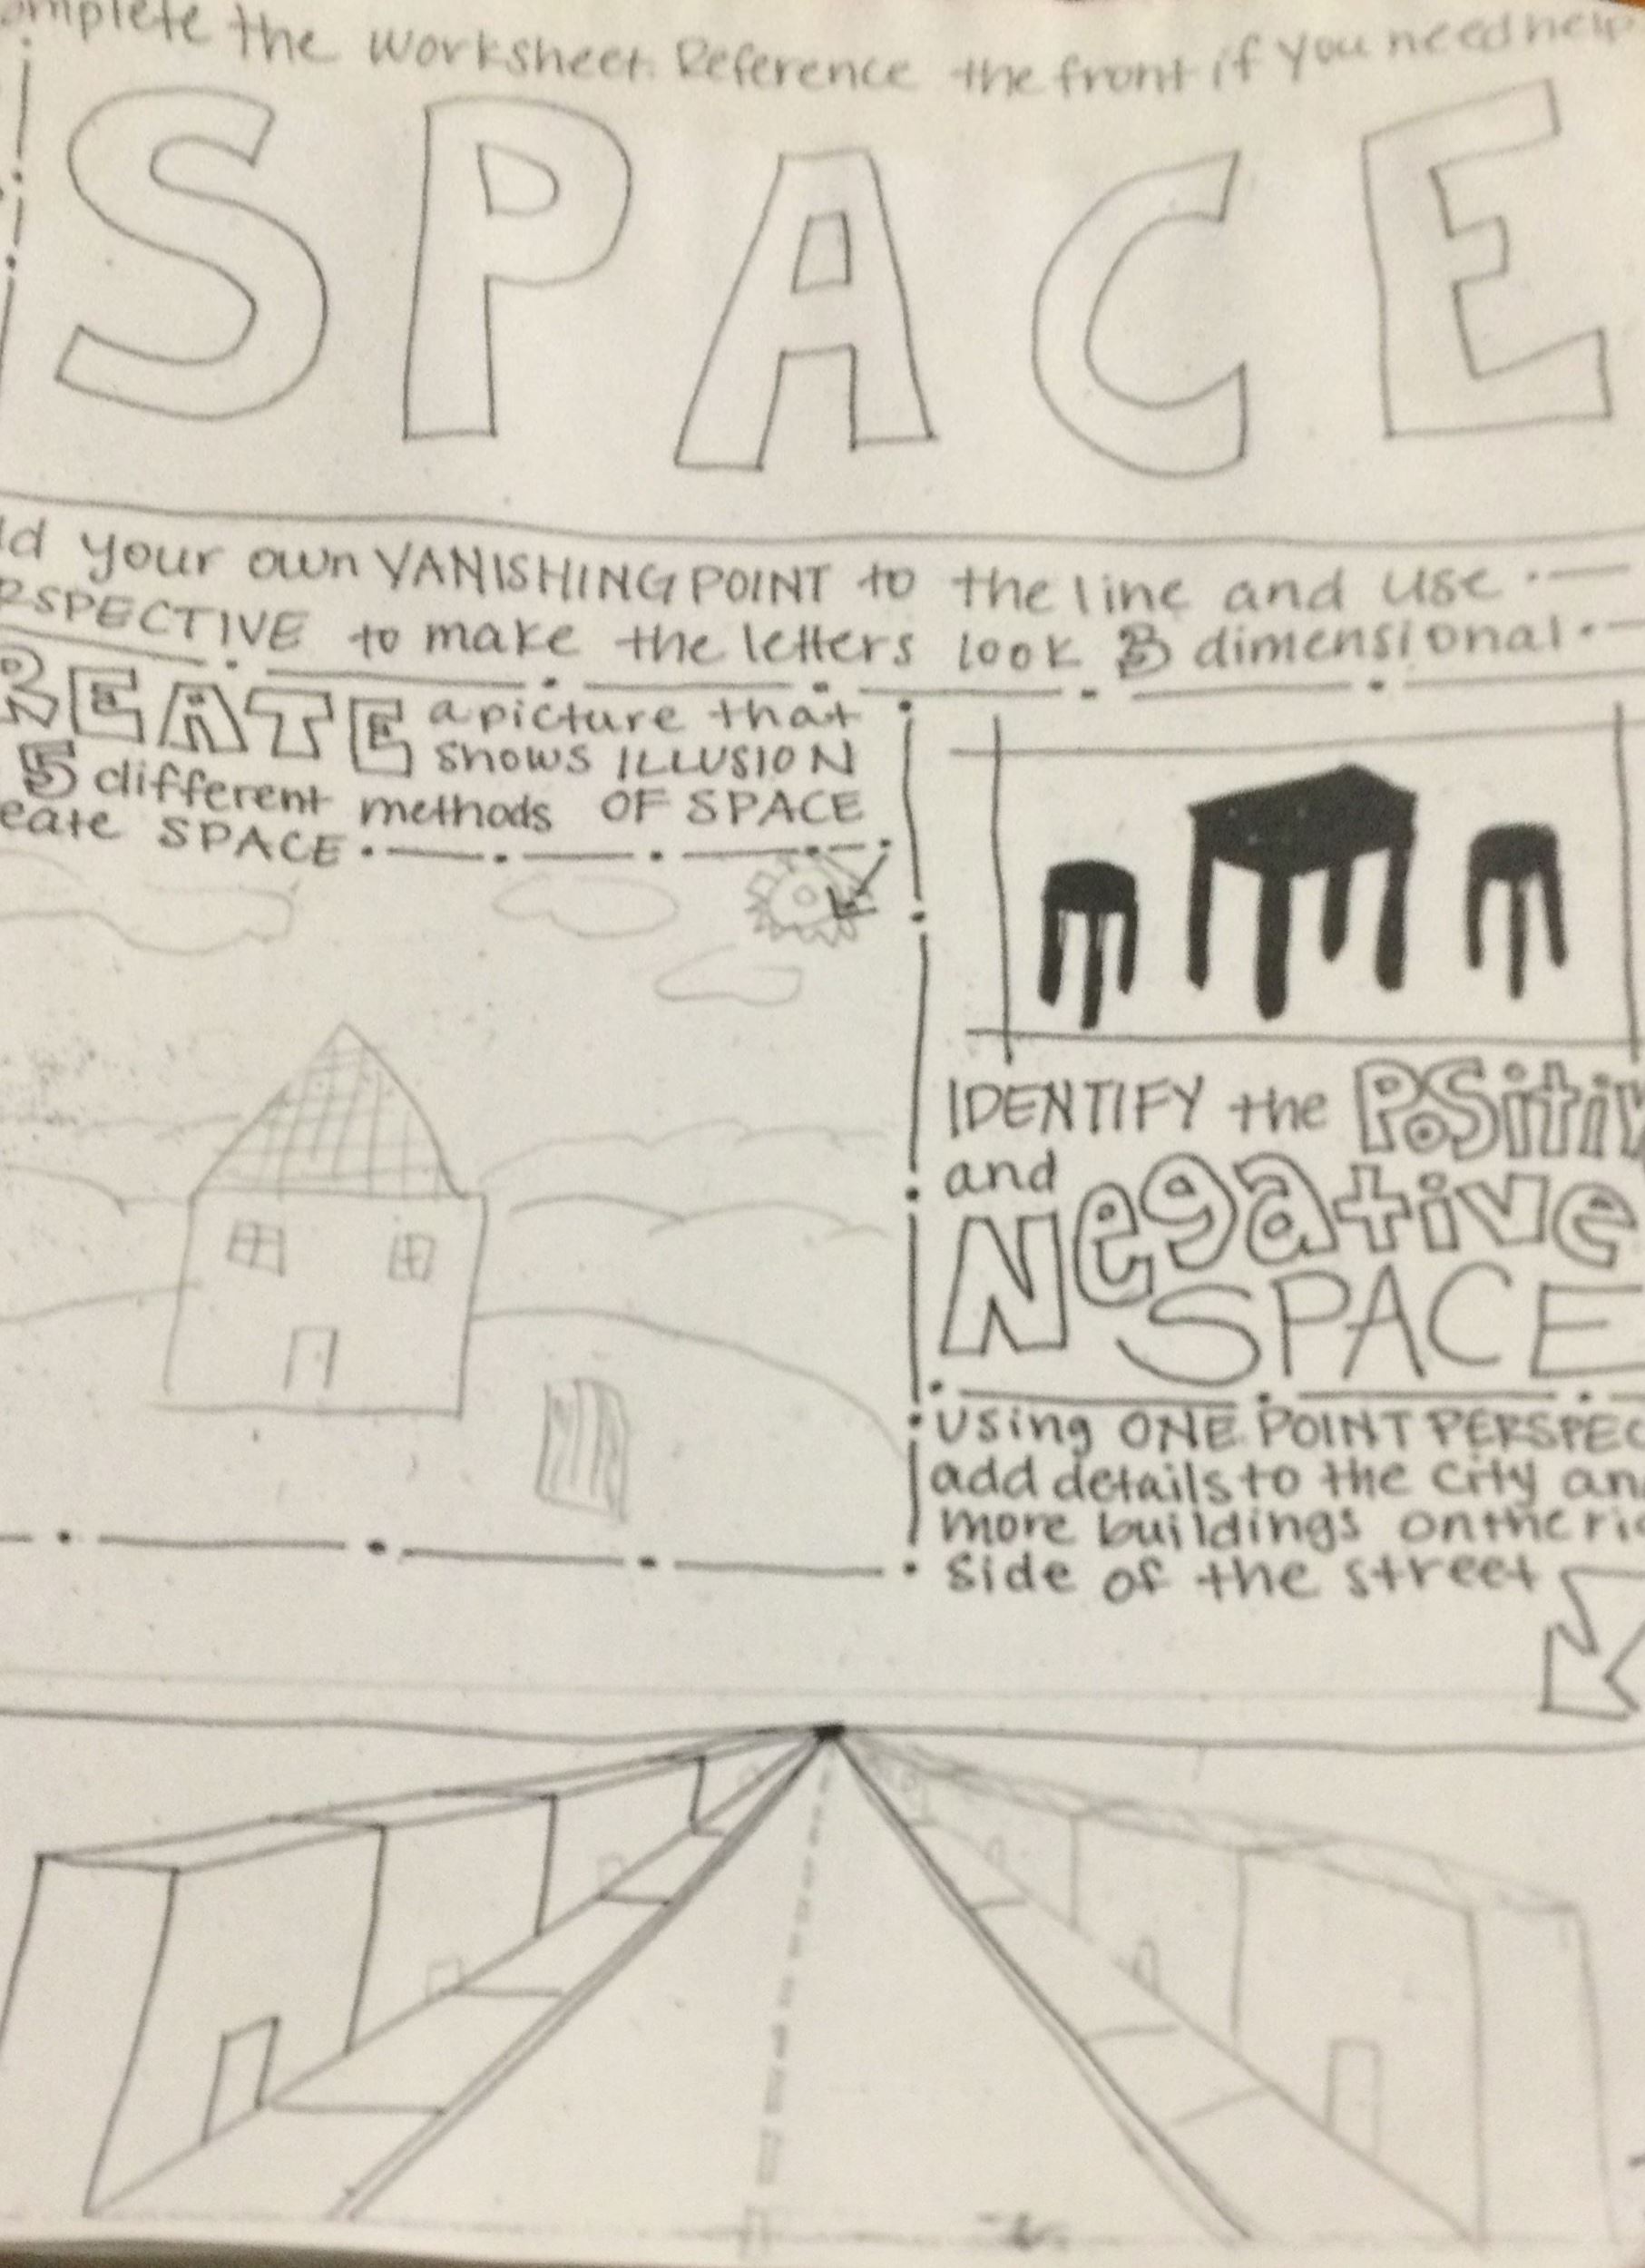 omplete the worksheet. Reference the front if you need help
SPACE
dd your own VANISHING POINT to the line and use
RSPECTIVE to make the letters look 3 dimensional
REATE a picture that
shows ILLUSION
5 different methods OF SPACE
eate SPACE
IDENTIFY the Positiv
and
Negative
SPACE
Using ONE POINT PERSPEC
add details to the city an
more buildings on the ri
side of the street